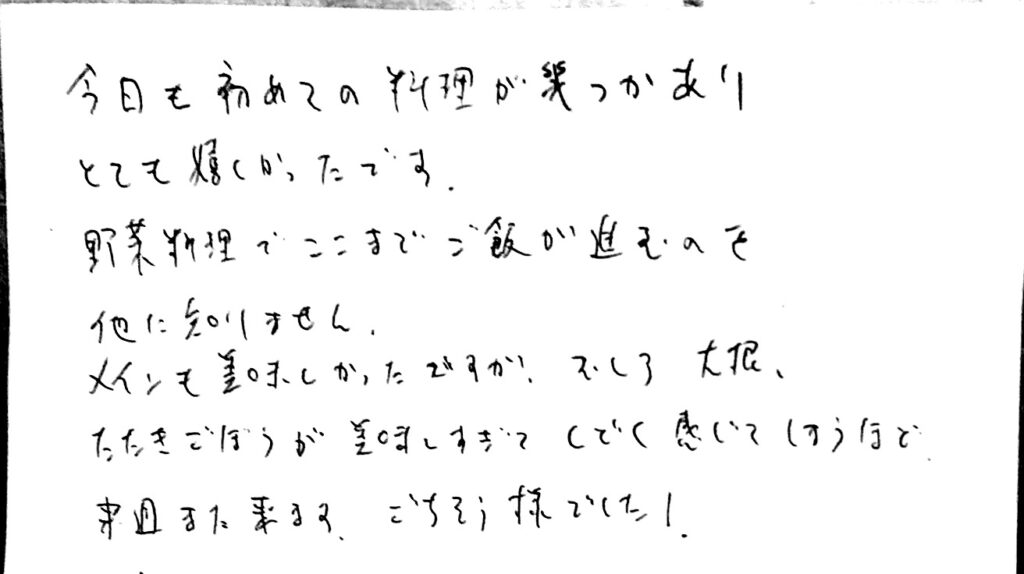 今日も初めての料理が幾つかあり
とても嬉しかったです。
野菜料理でここまでご飯が進むのを
他に知りません。
メインも美味しかったですが、むしろ大根、
たたきごぼうが美味しすぎて くどく感じてしまうほど。
来週また来ます。ごちそう様でした!